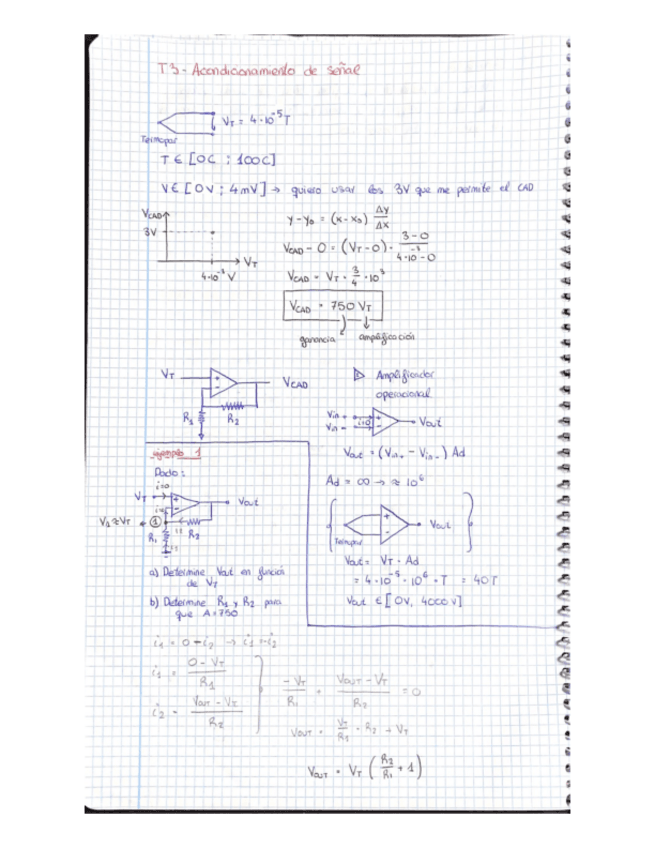 T3 - Acondicionamiento de señal
V_T = 4·10^-5 T
Termopar
T ∈ [0C ; 100C]
V ∈ [0V ; 4mV] → quiero usar los 3V que me permite el CAD
V_CAD
3V
V_T
4·10^-3 V
y - y_0 = (x - x_0) Δy/Δx
V_CAD - 0 = (V_T - 0) · 3-0 / 4·10^-3 - 0
V_CAD = V_T · 3/4 · 10^3
V_CAD = 750 V_T
ganancia
amplificación
V_T
V_CAD
R_1
R_2
Amplificador
operacional
Vin +
Vin -
i=0
Vout
Vout = (Vin+ - Vin-) Ad
Ad = ∞ → ≈ 10^6
Termopar
Vout
Vout = V_T · Ad
= 4·10^-5 · 10^6 · T = 40T
Vout ∈ [0V, 4000V]
ejemplo 1
Dado:
i=0
V_T
Vout
V_1 ≈ V_T
1
R_1
R_2
a) Determine Vout en función
de V_T
b) Determine R_1 y R_2 para
que A=750
i_1 = 0 - V_T / R_1
i_2 = Vout - V_T / R_2
-V_T / R_1 + Vout - V_T / R_2 = 0
Vout = V_T / R_1 · R_2 + V_T
Vout = V_T (R_2 / R_1 + 1)